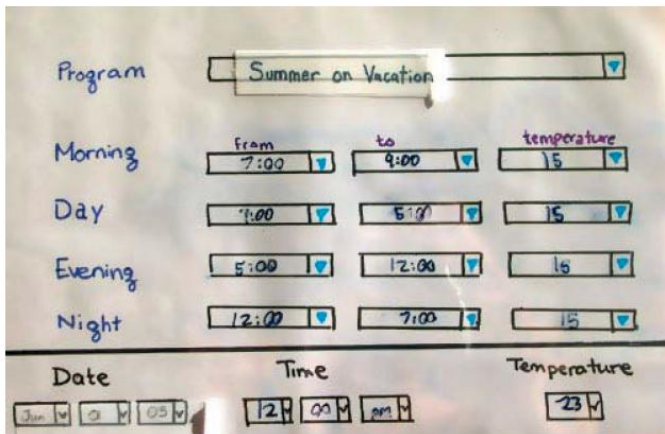 Program Summer on Vacation
from to temperature
Morning 7:00 9:00 15
Day 9:00 5:00 15
Evening 5:00 12:00 15
Night 12:00 7:00 15
Date Time Temperature
Jun 0 05 12 00 pm 23